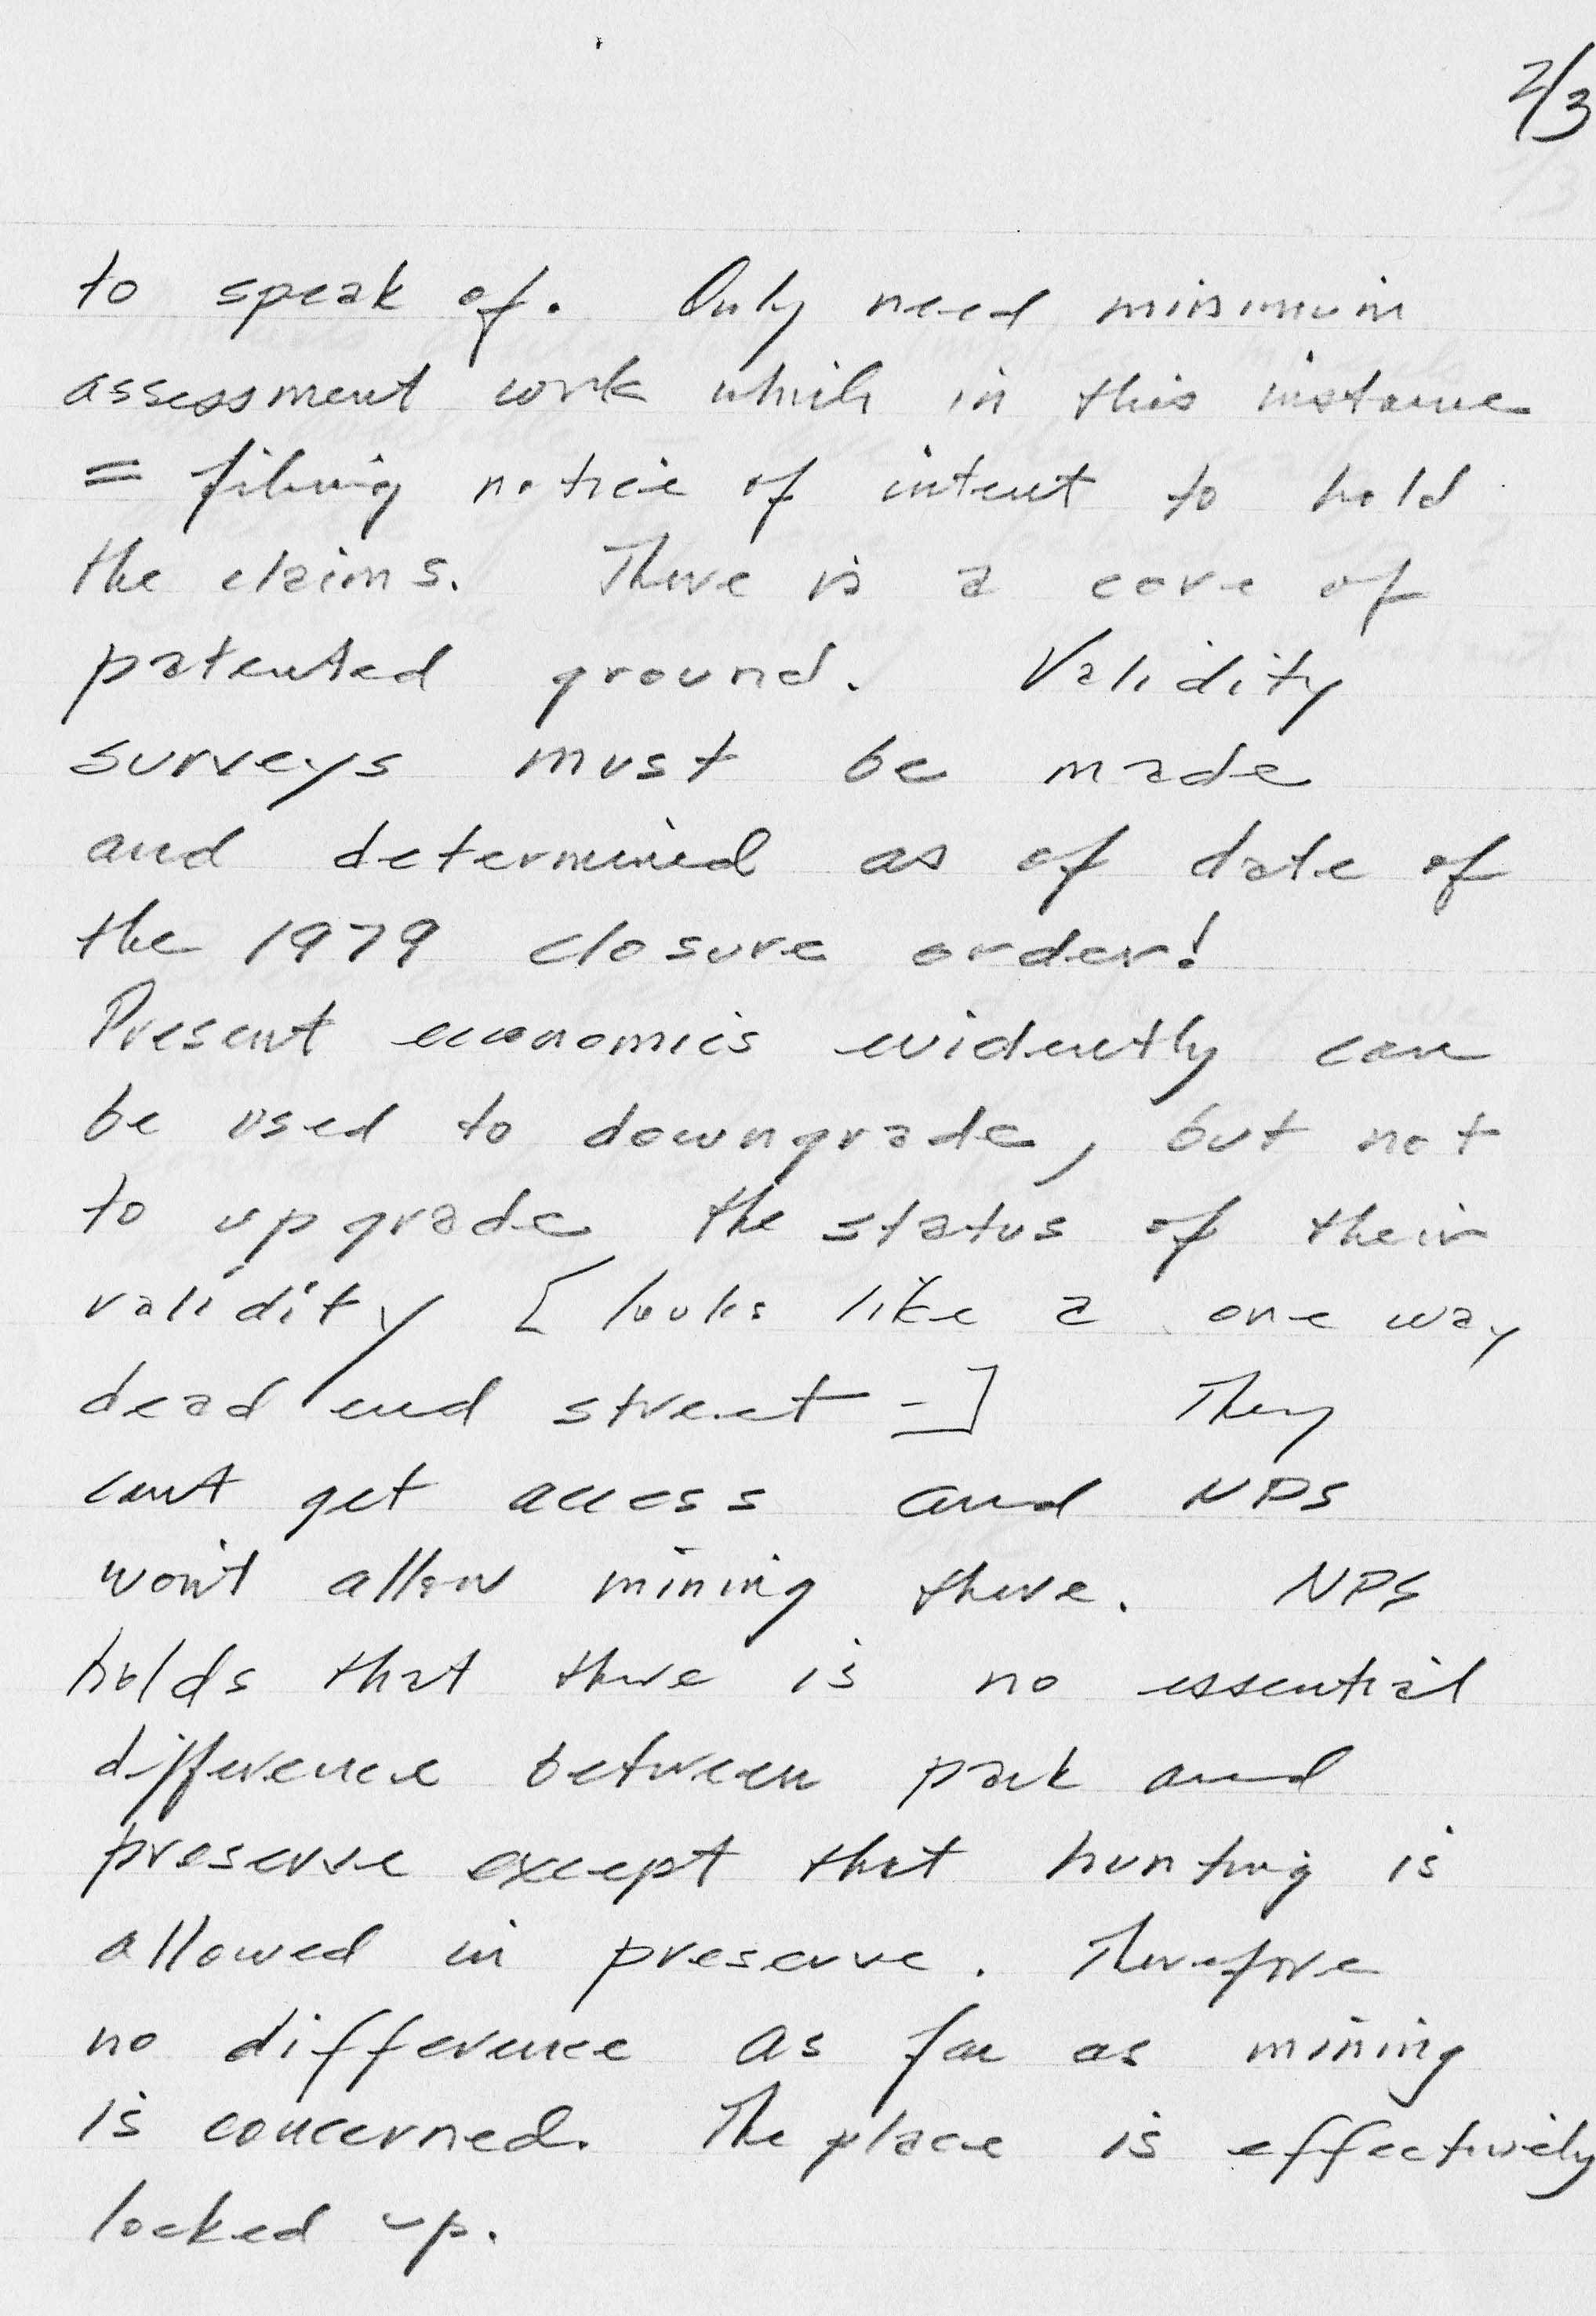 2/3
to speak of. Only need minimum
assessment work which in this instance
= filing notice of intent to hold
the claims. There is a core of
patented ground. Validity
surveys must be made
and determined as of date of
the 1979 closure order!
Present economics evidently can
be used to downgrade, but not
to upgrade the status of their
validity [ looks like a one way
dead end street - ] They
cant get access and NPS
won't allow mining there. NPS
holds that there is no essential
difference between park and
preserve except that hunting is
allowed in preserve. Therefore
no difference as far as mining
is concerned. The place is effectively
locked up.